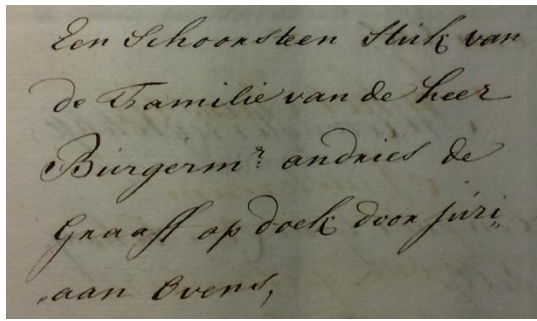 Een Schoorsteen Stuk van
de Familie van de heer
Burgerm.r andries de
Graaff op doek door juri„
„aan Ovens,